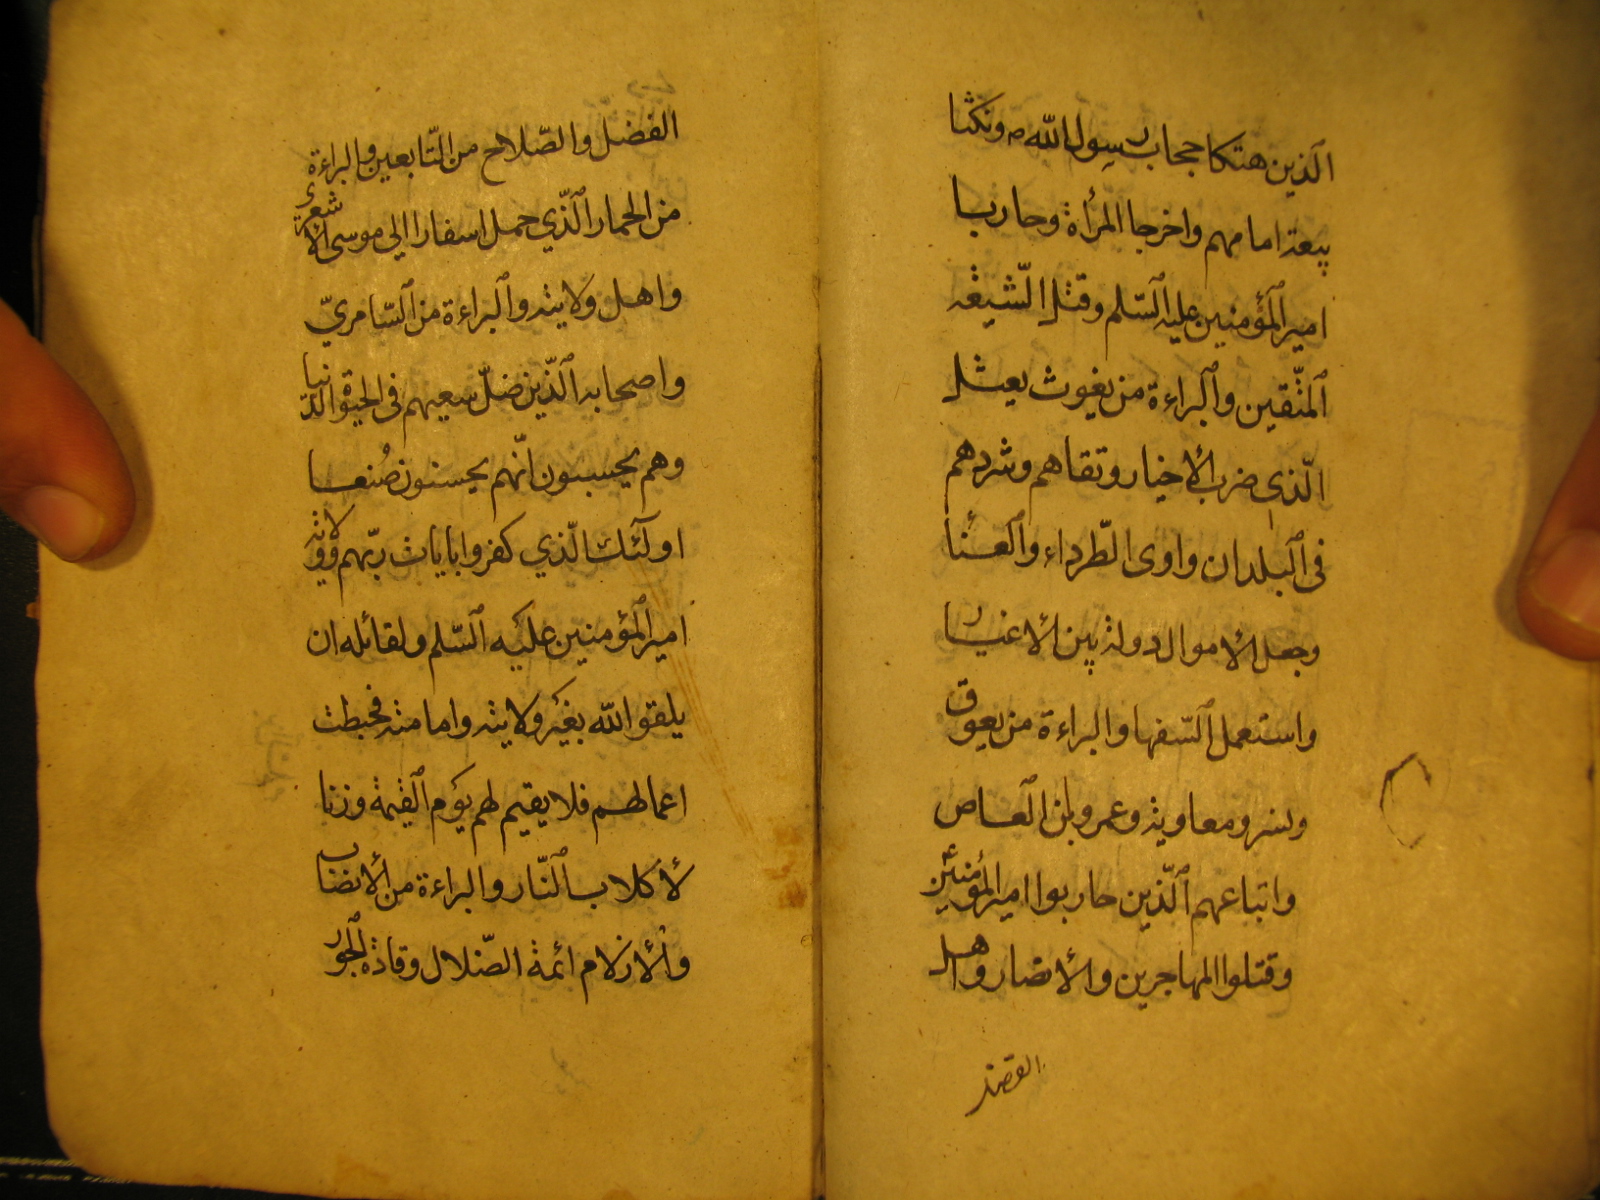 الذين هتكا حجاب رسول الله ص ونكثا
بيعة امامهم واخرجا المرأة وحاربا
امير المؤمنين عليه السلم وقتل الشيعة
المتقين والبراءة من يغوث
الذي ضرب الاخيار ونفاهم وشردهم
في البلدان واوى الطرداء
وجعل الاموال دولة بين الاغنيا
واستعمل السفها والبراءة من يعوق
ومعاوية وعمرو بن العاص
واتباعهم الذين حاربوا امير المؤمنين ع
وقتلوا المهاجرين والانصار واهل
الفضل
الفضل والصلاح من التابعين والبراءة
من الحمار الذي حمل اسفارا ابي موسى الاشعري
واهل ولايته والبراءة من السامري
واصحابه الذين ضل سعيهم في الحيوة الدنيا
وهم يحسبون انهم يحسنون صنعا
اولئك الذي كفروا بايات ربهم وولاية
امير المؤمنين عليه السلم ولقائه ان
يلقوا الله بغير ولايته وامامته فحبطت
اعمالهم فلا يقيم لهم يوم القيمة وزنا
لا كلاب النار والبراءة من الانصاب
والازلام ائمة الضلال وقادة الجور